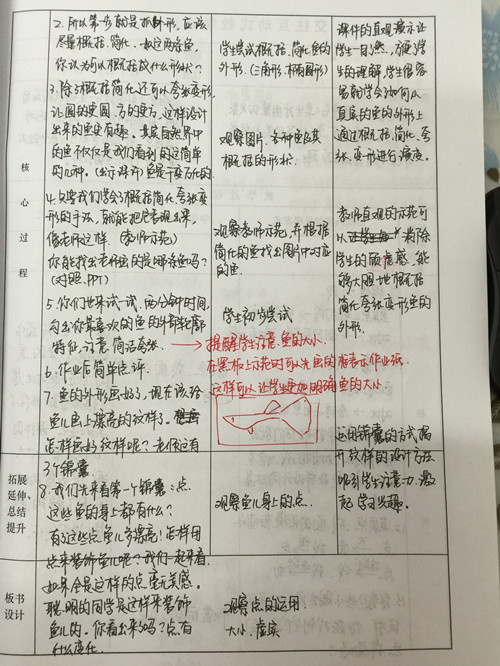 核
心
过
程
2. 所以第一步就是抓外形，应该
尽量概括、简化，如这两条鱼，
你认为可以概括成什么形状？
3. 除了概括简化还可以夸张变形，
让圆的更圆，方的更方，这样设计
出来的鱼更有趣。其实自然界中
的鱼不仅仅是我们看到的这简单
的几种。(出示课件) 鱼是千变万化的
4. 只要我们学会了概括简化夸张变
形的手法，就能把它表现出来，
像老师这样。(教师示范)
你能找出老师画的是哪条鱼吗？
(对照PPT)
5. 你们也来试一试，两分钟时间，
勾出你最喜欢的鱼的外形轮廓
特征，注意：简洁夸张。
6. 作业后简单点评。
7. 鱼的外形画好了，现在该给
鱼儿画上漂亮的纹样了。
怎样画好纹样呢？老师这有
学生尝试概括、简化鱼的
外形。(三角形、椭圆形)
观察图片，各种鱼及其
概括的形状。
观察教师示范，并根据
简化的鱼找出图中对应
的鱼。
学生初步尝试
提醒学生注意：鱼的大小
在黑板上示范时可以先画的
作业纸
这样可以让学生更加明确鱼的大小
课件的直观演示让
学生一目了然，方便学
生的理解，学生很容
易就学会如何从
直展的鱼的外形上
通过概括、简化、夸
张、变形进行演变。
教师直观的示范可
以消除
学生的顾虑感，能
够大胆地概括
简化夸张变形鱼的
外形。
运用锦囊的方式揭
开纹样的设计方法
吸引学生注意力，激
起学习兴趣。
拓展
延伸、
总结
提升
3个锦囊
8. 我们先来看第一个锦囊：点
这些鱼的身上都有什么？
有了这些点鱼儿多漂亮！怎样用
点来装饰鱼儿呢？我们一起来看
观察鱼儿身上的点。
板书
设计
如果全是这样的点毫无美感。
聪明的同学是这样来装饰
鱼儿的。你看出来了吗？点有
什么变化
观察点的运用
大小、虚实